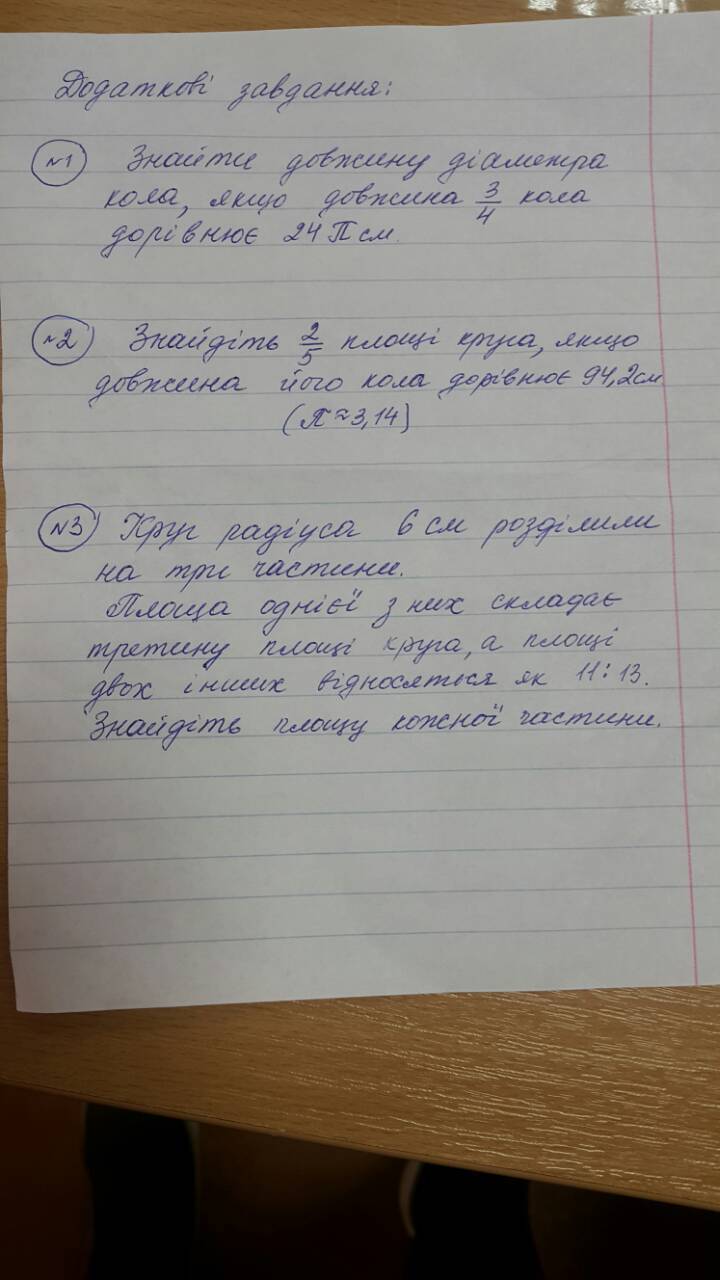 Додаткові завдання:
№1 Знайти довжину діаметра
кола, якщо довжина 3/4 кола
дорівнює 24 П см.
№2 Знайдіть 2/5 площі круга, якщо
довжина його кола дорівнює 94,2см
(π≈3,14)
№3 Круг радіуса 6 см розділили
на три частини.
Площа однієї з них складає
третину площі круга, а площі
двох інших відносяться як 11:13.
Знайдіть площу кожної частини.